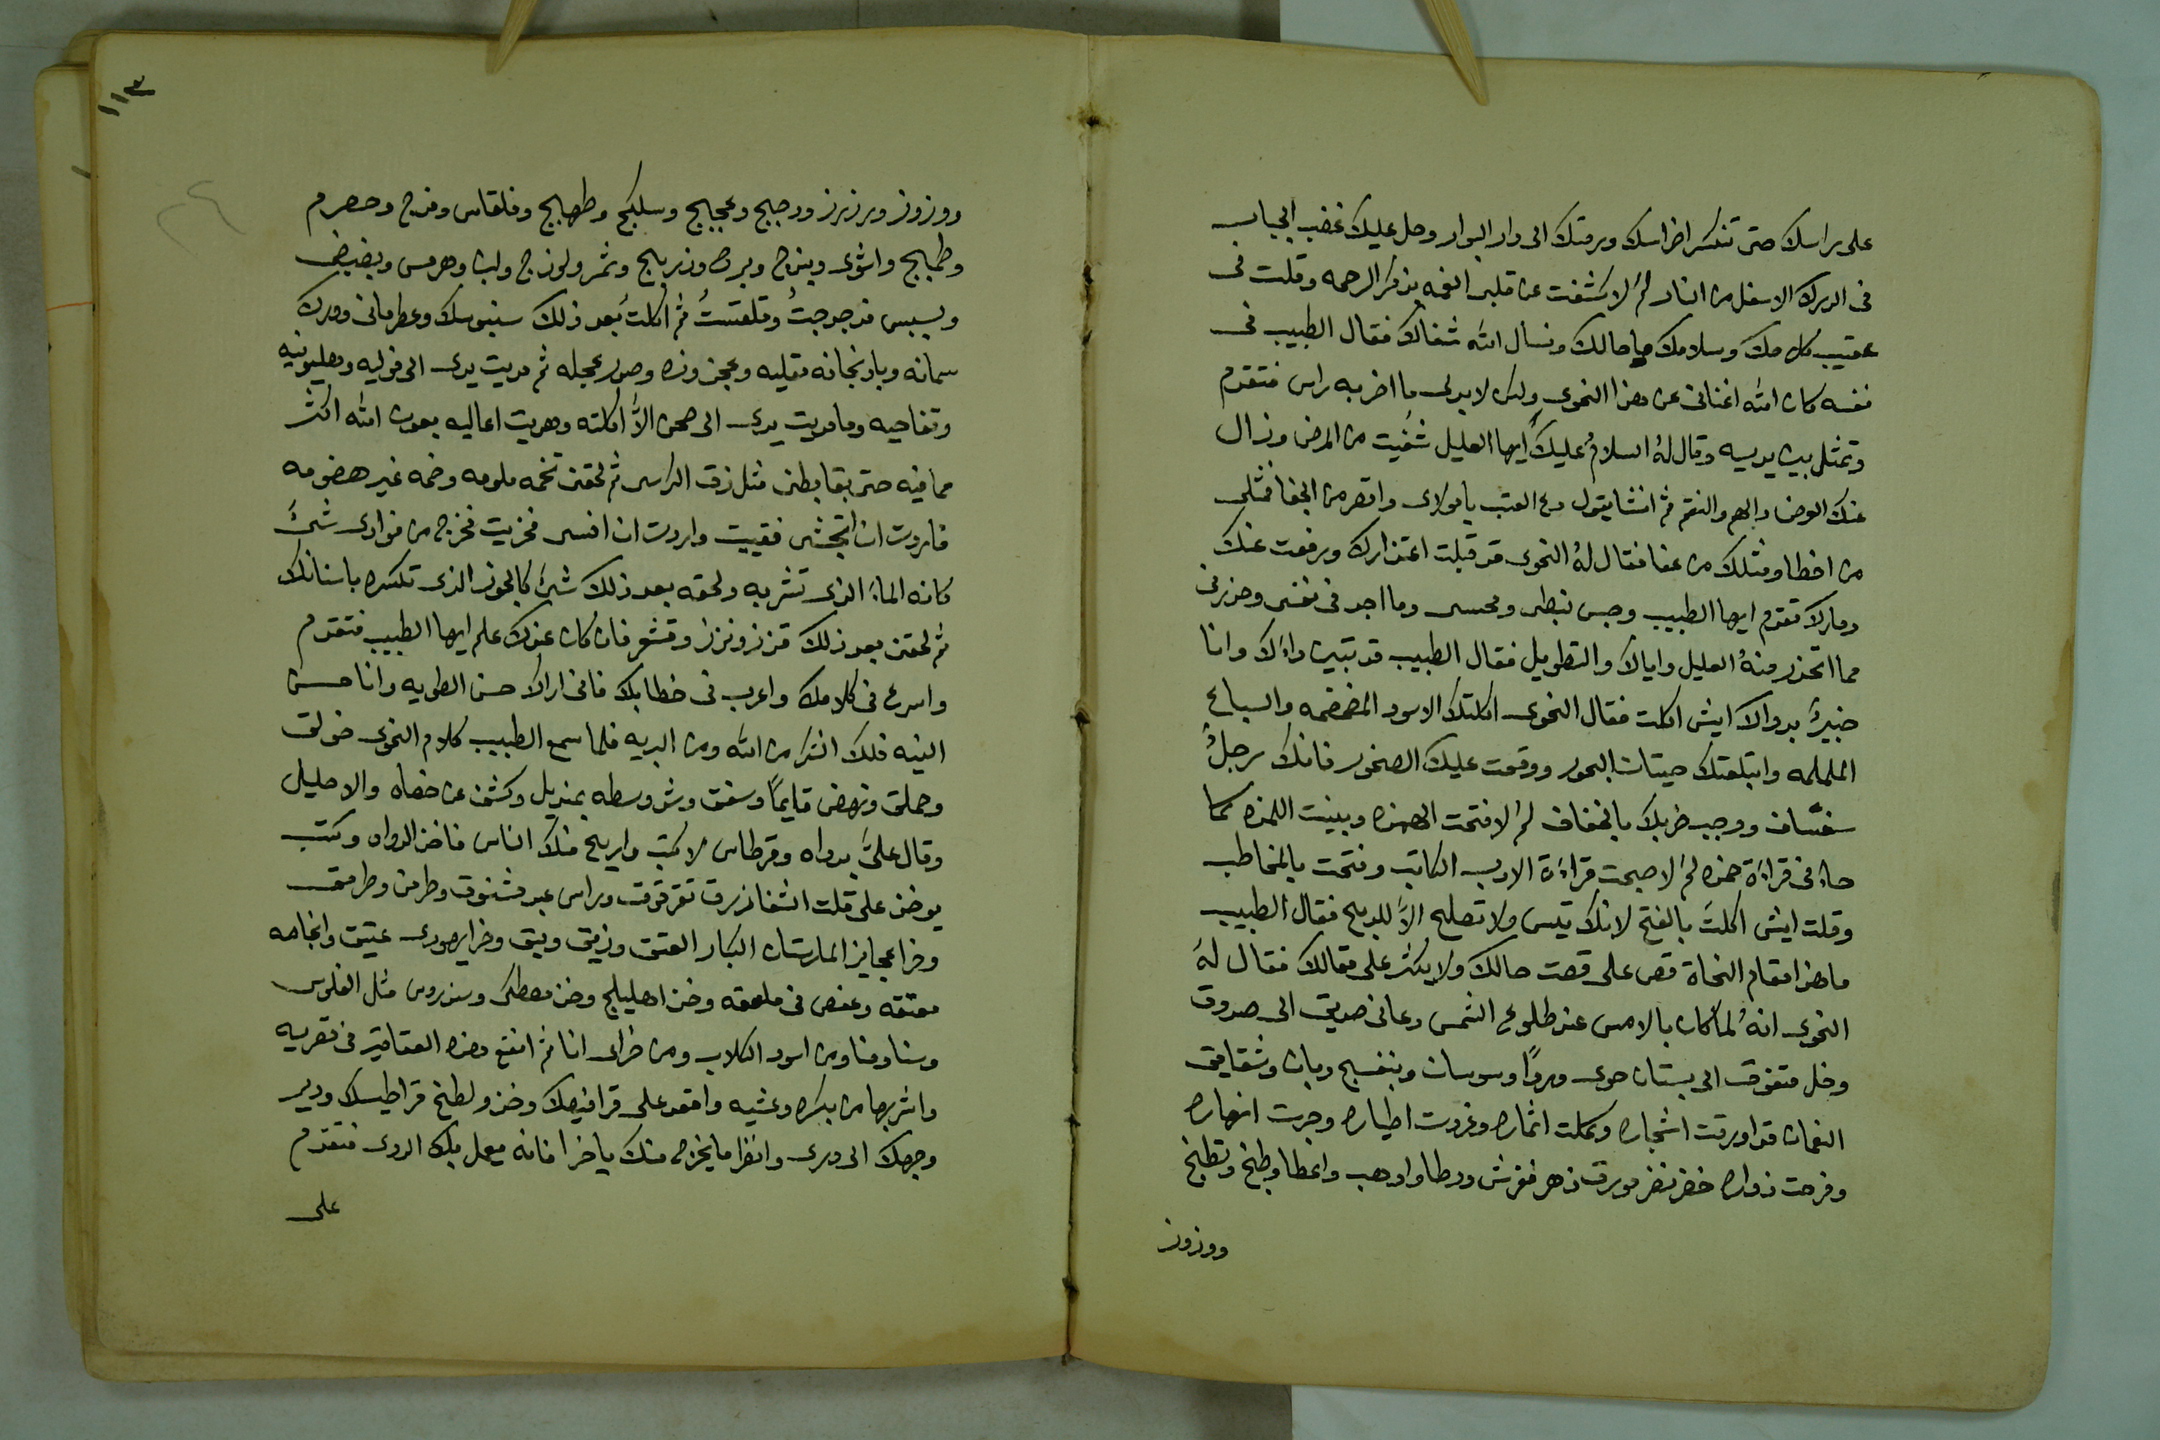 على راسك حتى تنكسر اضراسك ويرمتك الى دار البوار وحل عليك غضب الجبار
فى الدرك الاسفل من النار لم لا كشفت عن قلبى الغمه بذكر الرحمه وقلت فى
عقيب كلامك وسلامك ما حالك ونسأل الله شفاك فقال الطبيب فى
نفسه كان الله اغنانى عن هذا النحوى ولكن لا بد لى ما اضر به راس فتقدم
وتمثل بين يديه وقال لهُ السلام عليك ايها العليل شفيت من المرض وزال
عنك العرض والهم والنقم ثم انشا يقول دع العتب يا مولاى واقصر من الجفا فمثلى
من اخطا ومثلك من عفا فقال لهُ النحوى قد قبلت اعتذارك ورفعت عنك
دمارك تقدم ايها الطبيب وجس نبطى ومحسى وما اجد فى نفسى وحذرنى
مما اتحذر منهُ العليل واياك والتطويل فقال الطبيب قد تبين داءك وانا
خبيرٌ بدواك ايش اكلت فقال النحوى اكلتك الاسود المضمضمه والسباع
الململمه وابتلعتك حيتان البحور ووقعت عليك الصخور فانك رجلٌ
سفساف ووجب ضربك بالخفاف لم لا فتحت الهمزه وبينت اللمزه كما
جاء فى قراءة حمزه لم لا صححت قراءة الاديب الكاتب وفتحت بالمخاطب
وقلت ايش اكلتَ بالفتح لانك تيس ولا تصلح الاَّ للدبح فقال الطبيب
ما هذا مقام النحاة قص على قصت حالك ولا يكثر على مقالك فقال لهُ
النحوى انهُ لما كان بالامس عند طلوع الشمس دعانى صديق الى صدوق
وخل متفوق الى بستان حوى وردًا وسوسان وبنفسج وبان وشقايق
النعمان قد اورقت اشجاره وكملت اثماره وغردت اطياره وجرت انهاره
وفرحت زواره خضر نضر مورق زهر ففرش ووطا واوهب واعطا وطبخ وتطبخ
ووزوز
ووزوز وبرزبرز ودجبج وعجيج وسلبكج وطهابج وقلقاس وفرج وحصرم
وطبابج واشوى وبنرج وبره وزيربابج وتمر ولوزج ولبن وهرمس وبضبض
وبسبس فدجدجتُ وقلقستُ ثم اكلتُ بعد ذلك سنبوسك وعطر مانى وورك
سمانه وبادنجانه مقليه وعجز وزه وصدر عجله ثم مديت يدى الى فوليه وهليونيه
وتفاحيه وما مديت يدى الى صحن الاَّ اكلته وهديت اعاليه بعون الله اكثر
مما فيه حتى بقا بطنى مثل زق الراسى ثم لحقنى تخمه ملومه وخمه غير هضومه
فاردت ان اتجشى فقييت واردت ان افسى فخريت فخرج من فوادى شئَ
كانه الماء الذى تشربه ولحقه بعد ذلك شئَ كالجوز الذى تكسره باسنانك
ثم لحقنى بعد ذلك قزز ونزز وقشعر فان كان عندك علم ايها الطبيب فتقدم
واسرع فى كلامك واعرب فى خطابك فانى اراك حسن الطويه وانا حسن
النيه فلك الشكر من الله ومن البريه فلما سمع الطبيب كلام النحوى حولق
وحملق ونهض قايمًا وسفق وشد وسطه بمنديل وكشف عن خصاه والاحليل
وقال علىَّ بدواه وقرطاس لاكتب واريح منك الناس فاخذ الدواه وكتب
يوخذ على قلت الشفا زرق تقرقوق وراس عبد مشنوق وطرمن وطرمق
وخرا عجايز المارستان الكبار العتق وزيق وبيق وخرا يهودى عتيق وانجاصه
معتقه وعفص فى ملعقه وخذ اهليلج وخذ مصطكى وسندروس مثل الفلوس
وسنا وفنا ومن اسود الكلاب ومن خراى انا ثم انقع هذه العقاقير فى قصريه
واشربها من بكره وعشيه واقعد على قرافيصك وخذ ولطخ قراطيسك ودير
وجهك الى ورى وانظر ما يخرج منك يا خرا فانه يعمل بك الردى فتقدم
على
١١٣